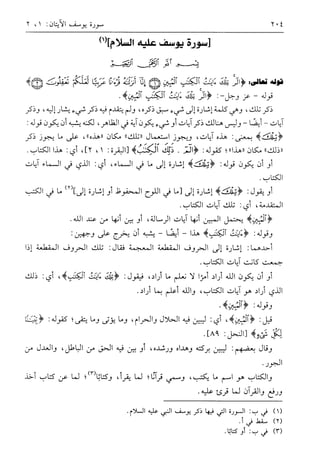 ٢٠٤ سورة يوسف الآيتان: ١، ٢
[سورة يوسف عليه السلام](١)
بسم الله الرحمن الرحيم
قوله تعالى: ﴿الٓر تِلْكَ ءَايَٰتُ ٱلْكِتَٰبِ ٱلْمُبِينِ ۝ إِنَّآ أَنزَلْنَٰهُ قُرْءَٰنًا عَرَبِيًّا لَّعَلَّكُمْ تَعْقِلُونَ ۝﴾
قوله - عز وجل-: ﴿الٓر تِلْكَ ءَايَٰتُ ٱلْكِتَٰبِ ٱلْمُبِينِ﴾.
ذكر تلك، وهي كلمة إشارة إلى شيء سبق ذكره، ولم يتقدم فيه ذكر شيء يشار إليه، وذكر
آيات - أيضًا - وليس هنالك ذكر آيات أو شيء يكون آية في الظاهر، لكنه يشبه أن يكون قوله:
﴿تِلْكَ﴾ بمعنى: هذه آيات، ويجوز استعمال «تلك» مكان «هذه»، على ما يجوز ذكر
«ذلك» مكان «هذا»؛ كقوله: ﴿الٓمٓ . ذَٰلِكَ ٱلْكِتَٰبُ﴾ [البقرة: ١، ٢]، أي: هذا الكتاب.
أو أن يكون قوله: ﴿تِلْكَ﴾ إشارة إلى ما في السماء، أي: الذي في السماء آيات
الكتاب.
أو يقول: ﴿تِلْكَ﴾ إشارة إلى [ما في اللوح المحفوظ أو إشارة إلى](٢) ما في الكتب
المتقدمة، أي: تلك آيات الكتاب.
﴿ٱلْمُبِينِ﴾ يحتمل المبين أنها آيات الرسالة، أو بين أنها من عند الله.
وقوله: ﴿تِلْكَ ءَايَٰتُ ٱلْكِتَٰبِ﴾ هذا - أيضًا - يشبه أن يخرج على وجهين:
أحدهما: إشارة إلى الحروف المقطعة المعجمة فقال: تلك الحروف المقطعة إذا
جمعت كانت آيات الكتاب.
أو أن يكون الله أراد أمرًا لا نعلم ما أراد، فيقول: ﴿تِلْكَ ءَايَٰتُ ٱلْكِتَٰبِ﴾، أي: ذلك
الذي أراد هو آيات الكتاب، والله أعلم بما أراد.
وقوله: ﴿ٱلْمُبِينِ﴾.
قيل: ﴿ٱلْمُبِينِ﴾، أي: ليبين فيه الحلال والحرام، وما يؤتى وما يتقى؛ كقوله: ﴿تِبْيَٰنًا
لِّكُلِّ شَىْءٍ﴾ [النحل: ٨٩].
وقال بعضهم: ليبين بركته وهداه ورشده، أو بين فيه الحق من الباطل، والعدل من
الجور.
والكتاب هو اسم ما يكتب، وسمي قرآنًا؛ لما يقرأ، وكتابًا(٣)؛ لما عن كتاب أخذ
ورفع والقرآن لما قرئ عليه.
(١) في ب: السورة التي فيها ذكر يوسف النبي عليه السلام.
(٢) سقط في أ.
(٣) في ب: أو كتابًا.